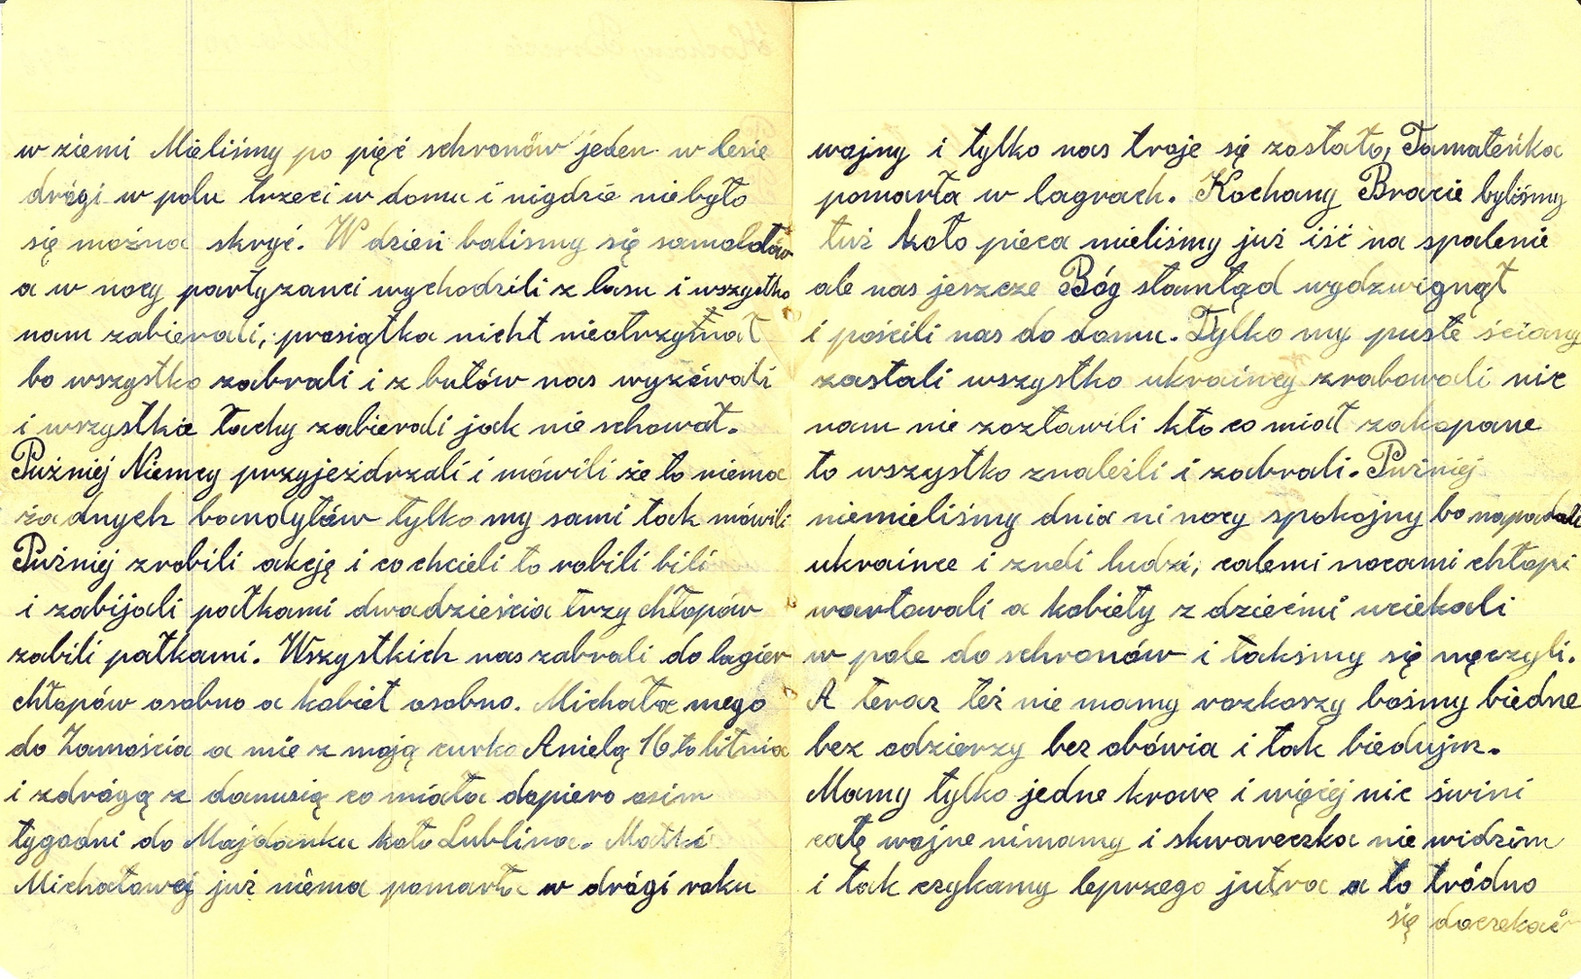 w ziemi Mieliśmy po pięć schronów jeden w lesie
drógi w polu trzeci w domu i nigdzie niebyło
się można skryć. W dzień baliśmy się samolotów
a w nocy partyzanci wychodzili z lasu i wszystko
nam zabierali, prosiątka nicht nieotrzymał
bo wszystko zabrali i z butów nas wyzówali
i wszystkie łachy zabierali jak nie schował.
Puźniej Niemcy przyjeżdrzali i mówili że to niema
żadnych bandytów tylko my sami tak mówili
Puźniej zrobili akcję i co chcieli to robili bili
i zabijali pałkami dwadzieścia trzy chłopów
zabili pałkami. Wszystkich nas zabrali do lagier
chłopów osobno a kobiet osobno. Michała mego
do Zamościa a mie z moją curko Anielą 16 to litnia
i zdrógą z danusią co miała dopiero osim
tygodni do Majdanku koło Lublina. Matki
Michałowej już nima pomarła w drógi roku
wojny i tylko nas troje się zostało, Tamateńka
pomarła w lagrach. Kochany Bracie byliśmy
tuż koło pieca mieliśmy już iść na spalenie
ale nas jeszcze Bóg stamtąd wydzwignął
i pościli nas do domu. Tylko my puste ściany
zastali wszystko ukraińcy zrabowali nic
nam nie zoztawili kto co miał zakopane
to wszystko znaleźli i zabrali. Puźniej
niemieliśmy dnia ni nocy spokojny bo napadali
ukraince i żneli ludzi, całemi nocami chłopi
wartowali a kobiety z dziećmi uciekali
w pole do schronów i takśmy się męczyli.
A teraz też nie mamy rozkorzy bośmy biedne
bez odzierzy bez obówia i tak biedujm.
Mamy tylko jedne krowe i więcej nic świni
całę wojne nimamy i skwareczka nie widzim
i tak czykamy leprzego jutra a to tródno
się doczekać